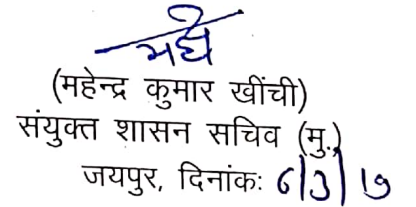 (महेन्द्र कुमार खींची)
संयुक्त शासन सचिव (मु.)
जयपुर, दिनांकः 6/3/17